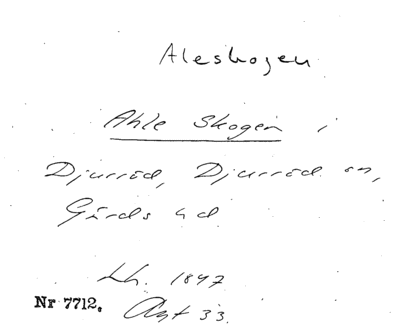 Aleskogen
Ahle Skogen i
Djurröd, Djurröd sn,
Gärds hd
Lh. 1847
Nr 7712. Akt 33.